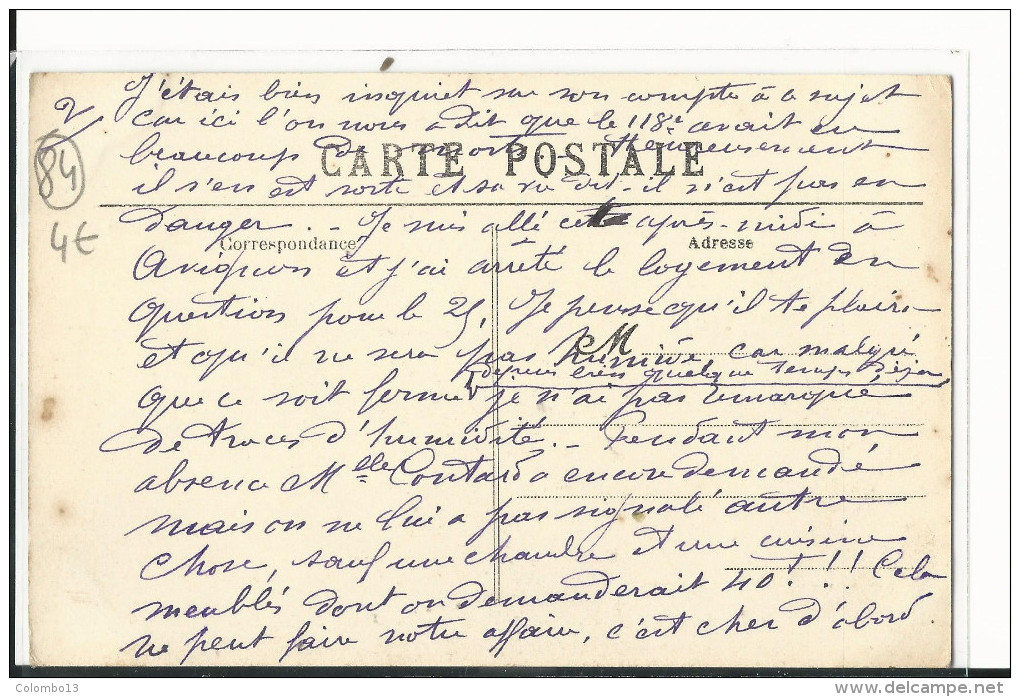 2/
J'étais bien inquiet sur son compte à ce sujet
car ici l'on nous a dit que le 118e avait eu
beaucoup de morts. Heureusement
CARTE POSTALE
(84)
il s'en est sorti et sa vie dit-il n'est pas en
danger. - Je suis allé cet après-midi à
4€
Correspondance
Adresse
Avignon et j'ai arrêté le logement en
question pour le 25, Je pense qu'il te plaira
et qu'il ne sera pas humide, car malgré
depuis quelque temps déjà
que ce soit fermé je n'ai pas remarqué
de traces d'humidité. - Pendant mon
absence Melle Contard a encore demandé
mais on ne lui a pas signalé autre
chose, sauf une chambre et une cuisine
meublés dont on demanderait 40!!! Cela
ne peut faire notre affaire, c'est cher d'abord
Colombo13
delcampe.net